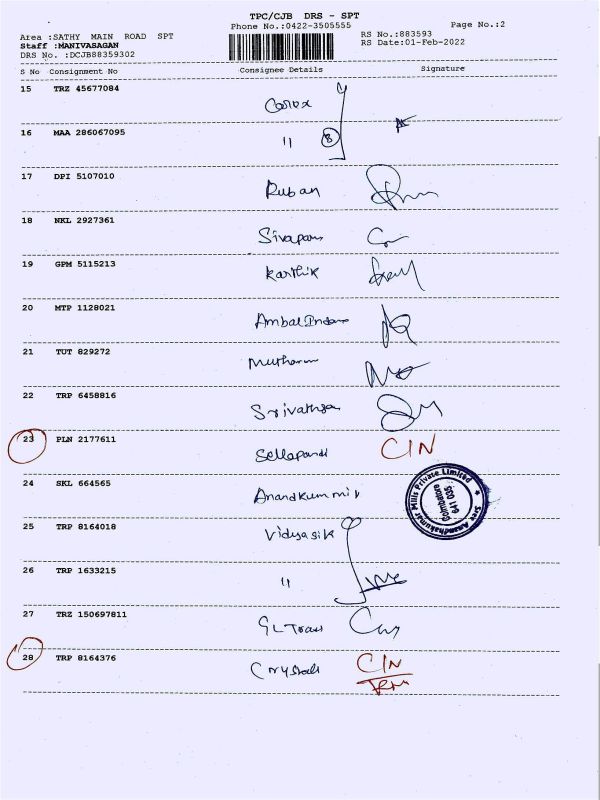 TPC/CJB DRS - SPT
Phone No.:0422-3505555 Page No.:2
Area :SATHY MAIN ROAD SPT RS No.:883593
Staff :MANIVASAGAN RS Date:01-Feb-2022
DRS No. :DCJB88359302
S No Consignment No Consignee Details Signature
15 TRZ 45677084
16 MAA 286067095 11 B
17 DPI 5107010 Ruban
18 NKL 2927361
19 GPM 5115213 Karthik
20 MTP 1128021 Ambal
21 TUT 829272
22 TRP 6458816 Srivathsa
23 PLN 2177611 Sellapandi CIN
24 SKL 664565
Sree Anandhakumar Mills Private Limited
Coimbatore
641 035.
25 TRP 8164018 Vidyasik
26 TRP 1633215 11
27 TRZ 150697811 GL
28 TRP 8164376 CIN